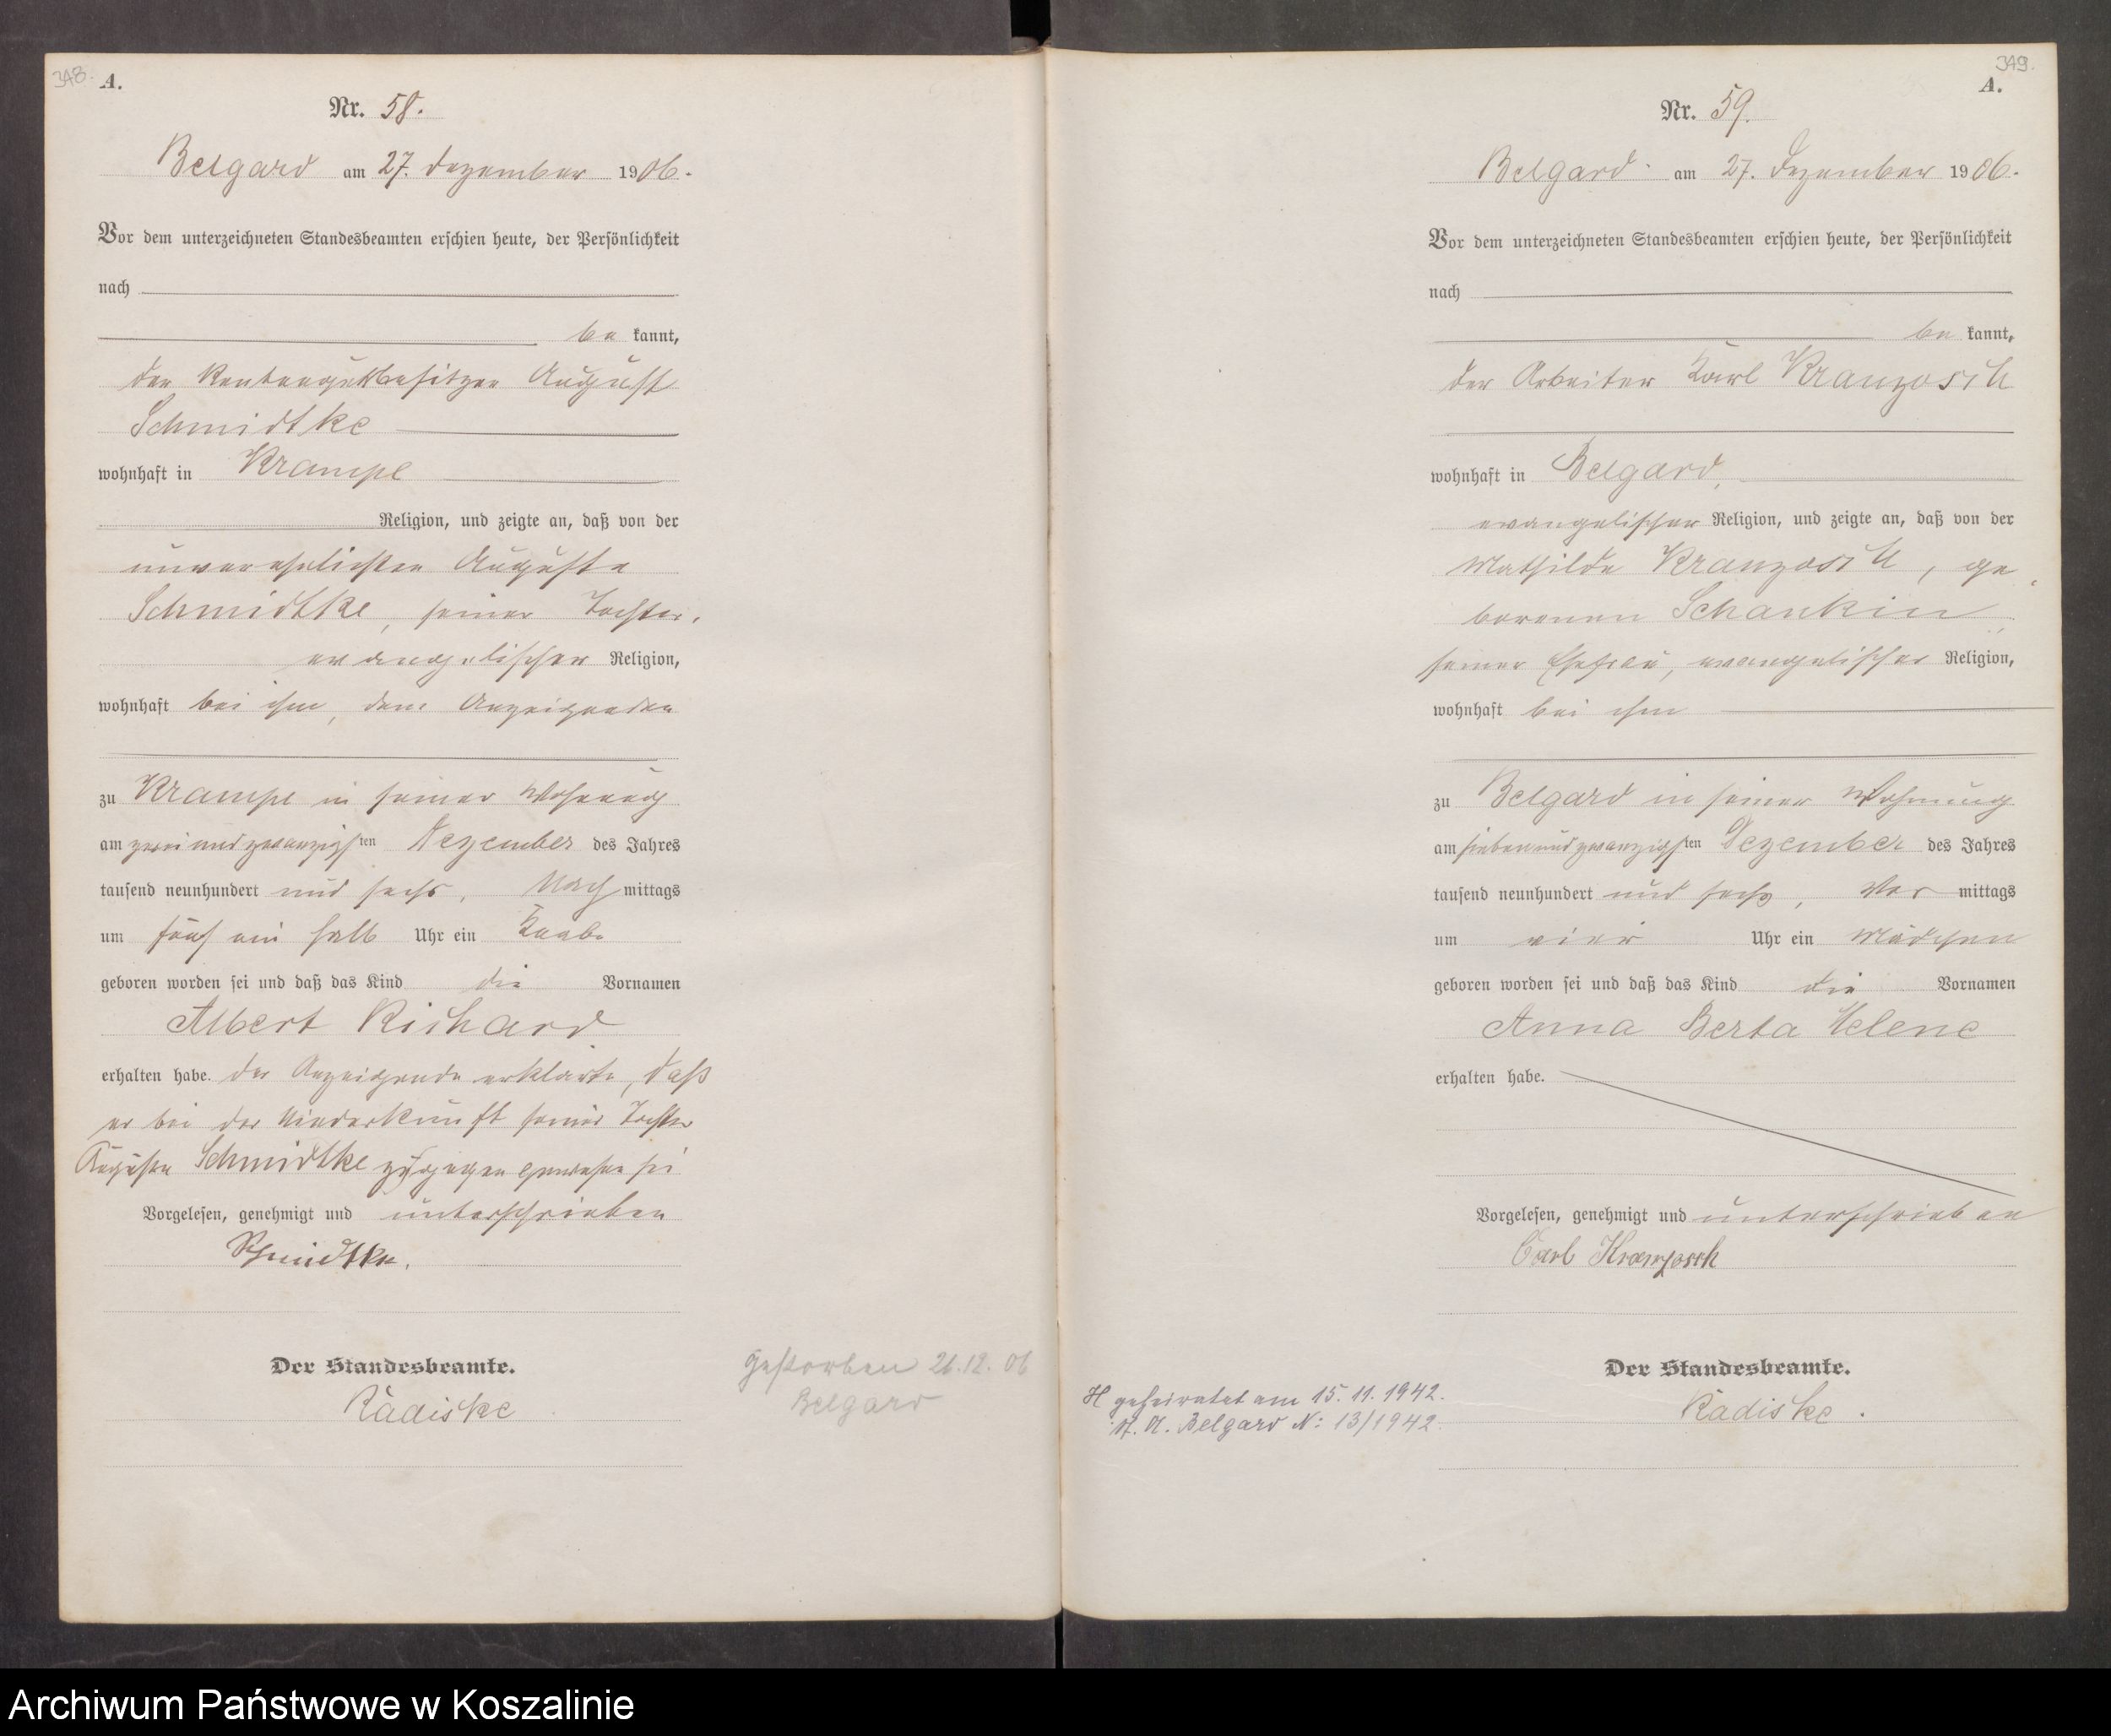 348.
A.
Nr. 58.
Belgard am 27. Dezember 1906.
Vor dem unterzeichneten Standesbeamten erschien heute, der Persönlichkeit
nach
be kannt,
der Rentengutsbesitzer August
Schmidtke
wohnhaft in Krampe
Religion, und zeigte an, daß von der
unverehelichten Auguste
Schmidtke, seiner Tochter,
evangelischer Religion,
wohnhaft bei ihm, dem Anzeigenden
zu Krampe in seiner Wohnung
am zwei und zwanzigsten Dezember des Jahres
tausend neunhundert und sechs, Nach mittags
um fünf ein halb Uhr ein Knabe
geboren worden sei und daß das Kind die Vornamen
Albert Richard
erhalten habe. Der Anzeigende erklärte, daß
er bei der Niederkunft seiner Tochter
Auguste Schmidtke zugegen gewesen sei
Vorgelesen, genehmigt und unterschrieben
Schmidtke.
Der Standesbeamte.
Radiske
Gestorben 12. 06
Belgard
349.
A.
Nr. 59.
Belgard am 27. Dezember 1906.
Vor dem unterzeichneten Standesbeamten erschien heute, der Persönlichkeit
nach
be kannt,
der Arbeiter Karl Kranzosch
wohnhaft in Belgard,
evangelischer Religion, und zeigte an, daß von der
Mathilde Kranzosch, ge
borenen Schankin
seiner Ehefrau, evangelischer Religion,
wohnhaft bei ihm
zu Belgard in seiner Wohnung
am sieben und zwanzigsten Dezember des Jahres
tausend neunhundert und sechs, Vor mittags
um vier Uhr ein Mädchen
geboren worden sei und daß das Kind die Vornamen
Anna Berta Helene
erhalten habe.
Vorgelesen, genehmigt und unterschrieben
Carl Kranzosch
Der Standesbeamte.
Radiske.
H geheiratet am 15. 11. 1942.
St. A. Belgard N: 13/1942.
Archiwum Państwowe w Koszalinie